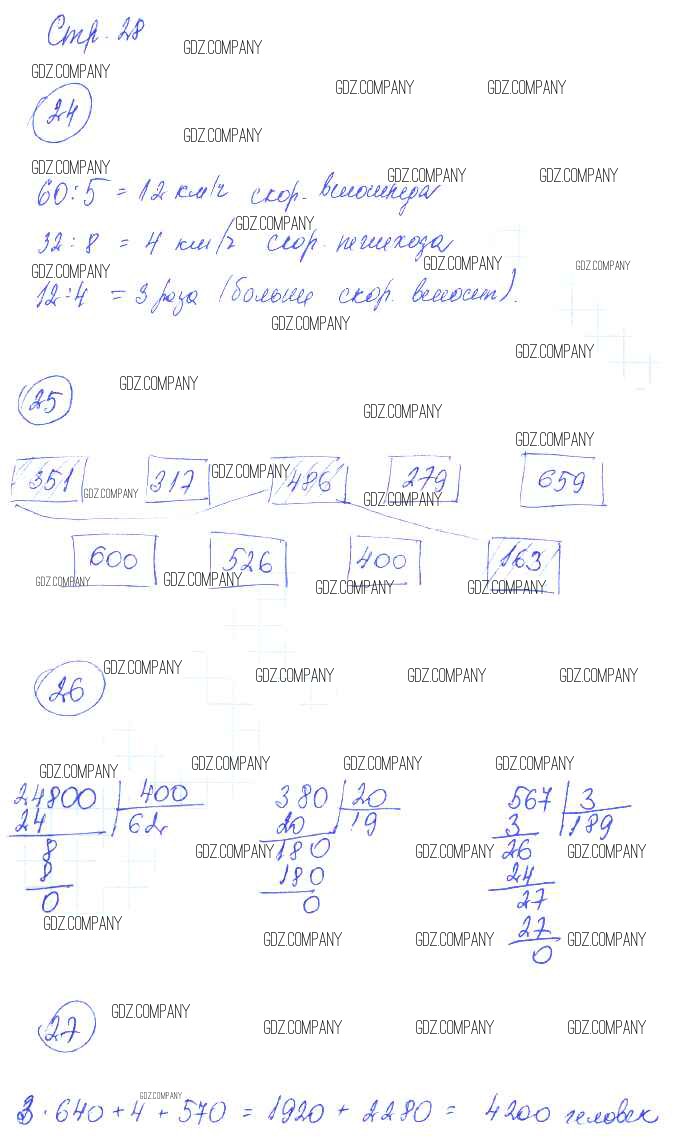 Стр. 28
GDZ.COMPANY
GDZ.COMPANY
GDZ.COMPANY GDZ.COMPANY
24
GDZ.COMPANY
GDZ.COMPANY
GDZ.COMPANY GDZ.COMPANY
60 : 5 = 12 км/ч скор. велосипеда
GDZ.COMPANY
32 : 8 = 4 км/ч скор. пешехода
GDZ.COMPANY GDZ.COMPANY GDZ.COMPANY
12 : 4 = 3 раза (больше скор. велосип).
GDZ.COMPANY
GDZ.COMPANY
25
GDZ.COMPANY
GDZ.COMPANY
GDZ.COMPANY
351 317 486 279 659
GDZ.COMPANY GDZ.COMPANY GDZ.COMPANY
600 526 400 163
GDZ.COMPANY GDZ.COMPANY GDZ.COMPANY GDZ.COMPANY
26
GDZ.COMPANY GDZ.COMPANY GDZ.COMPANY GDZ.COMPANY
GDZ.COMPANY GDZ.COMPANY GDZ.COMPANY GDZ.COMPANY
24800 400 380 20 567 3
24 62 20 19 3 189
8 180 26
GDZ.COMPANY GDZ.COMPANY GDZ.COMPANY
8 180 24
0 0 27
GDZ.COMPANY
27
GDZ.COMPANY GDZ.COMPANY GDZ.COMPANY
0
27
GDZ.COMPANY
GDZ.COMPANY GDZ.COMPANY GDZ.COMPANY
GDZ.COMPANY
3 · 640 + 4 + 570 = 1920 + 2280 = 4200 человек